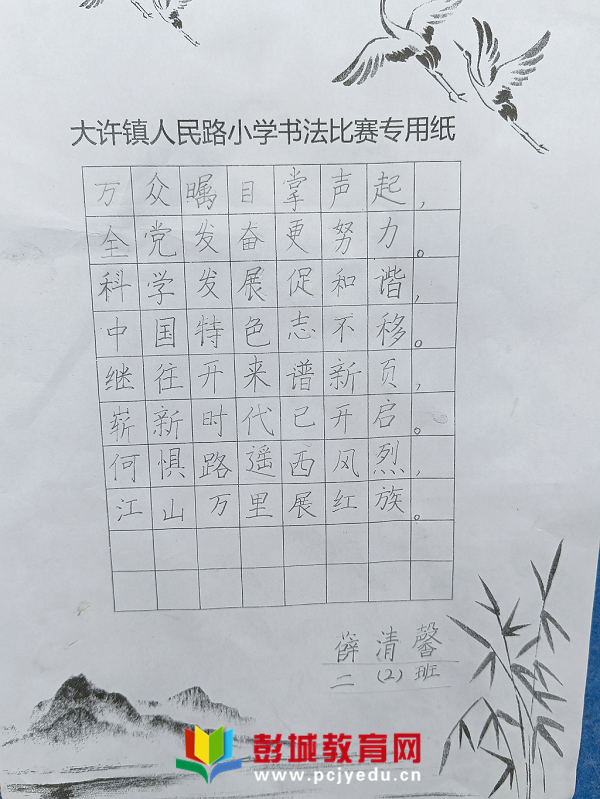 大许镇人民路小学书法比赛专用纸
万众瞩目掌声起，
全党发奋更努力。
科学发展促和谐，
中国特色志不移。
继往开来谱新页，
崭新时代已开启。
何惧路遥西风烈，
江山万里展红族。
薛清馨
二（2）班
彭城教育网
www.pcjyedu.cn